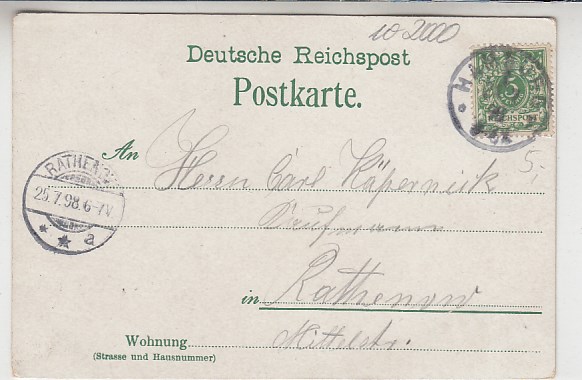 10 2000
Deutsche Reichspost
Postkarte.
5
REICHSPOST
RATHENOW
25.7.98.6-7V.
* * a
5,-
An Herrn Carl Käpernick
Kaufmann
in Rathenow
Mittelstr.
Wohnung
(Strasse und Hausnummer)